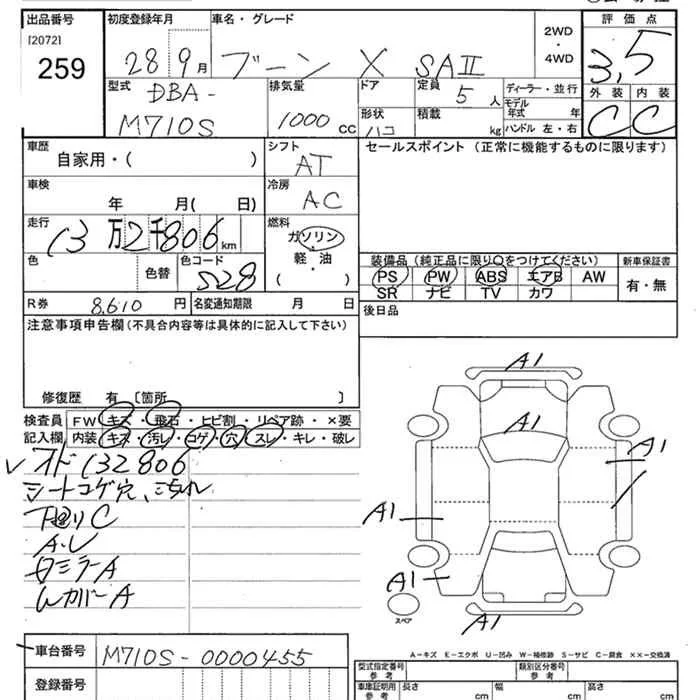 出品番号
[2072]
259
初度登録年月
28 9月
車名・グレード
ブーン X SAⅡ
2WD
・
4WD
評価点
3,5
外装 内装
C C
型式
DBA-
M710S
排気量
1000 cc
ドア
形状
ハコ
定員
5 人
積載
kg
ディーラー・並行
モデル年式 年
ハンドル 左・右
車歴
自家用・( )
シフト
AT
セールスポイント (正常に機能するものに限ります)
車検
年 月( 日)
冷房
AC
走行
13万2千806km
燃料
ガソリン
軽・油
( )
色
色替
色コード
S28
装備品(純正品に限り○をつけてください)
PS PW ABS エアB AW
SR ナビ TV カワ
新車保証書
有・無
R券 8,610 円
名変通知期限 月 日
後日品
注意事項申告欄(不具合内容等は具体的に記入して下さい)
修復歴 有 〔箇所 〕
検査員記入欄
FW キズ・飛石・ヒビ割・リペア跡・×要
内装 キズ・汚レ・コゲ・穴・スレ・キレ・破レ
オド132806
シートコゲ穴、
下回りC
A.V
ミラーA
カバーA
A1
A1
A1
A1
A1
A1
スペア
A-キズ E-エクボ U-凹み W-補修跡 S-サビ C-腐食 ××-交換済
車台番号 M710S-0000455
登録番号
型式指定番号
参考
類別区分番号
参考
車庫証明用
参考
長さ cm
幅 cm
高さ cm